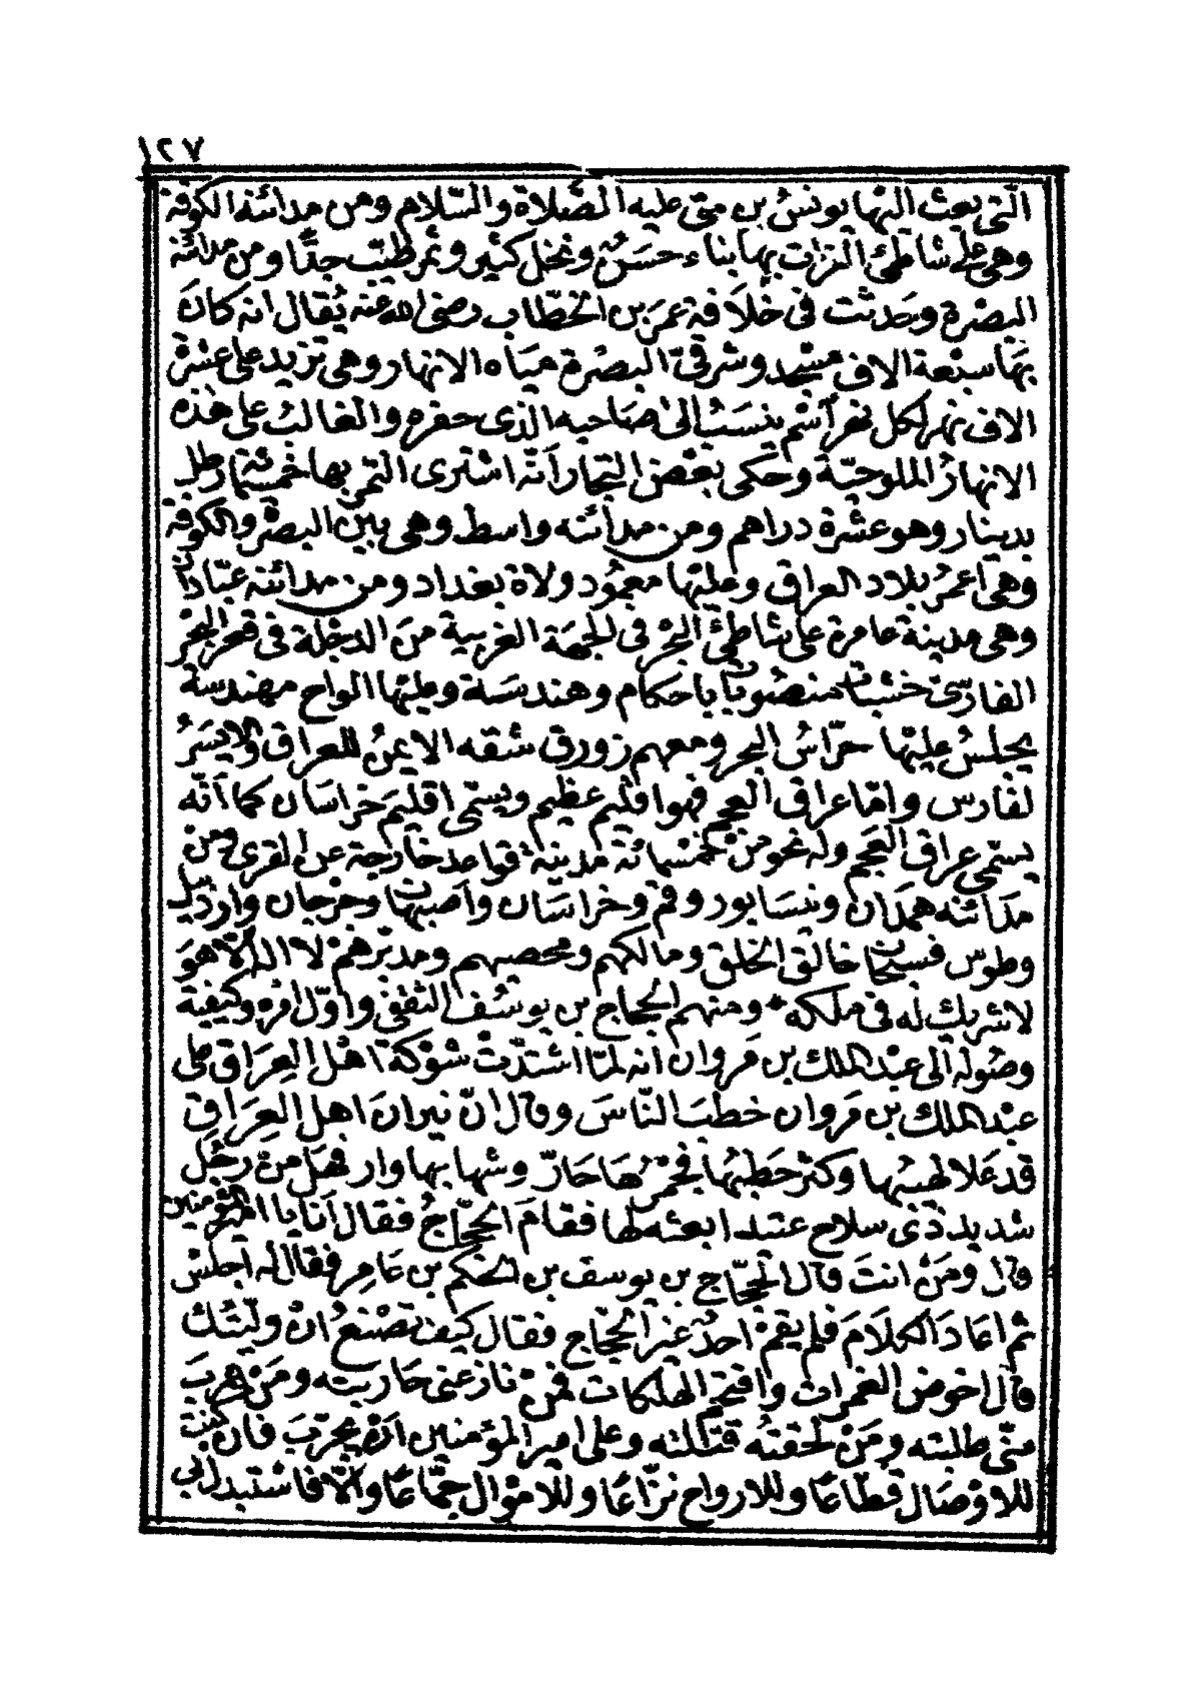 ١٢٧
الّتى بعث اليْها يونسُ بن متى عليه الصَّلاة والسّلام ومن مدائنه الكوفة
وهى على شاطئ الفرات بها بناء حسَنٌ ونخل كثير وثمر طيّب جدًّا ومن مدائنه
البصْرة وحَدثت فى خلَافة عمرَ بن الخطّاب رضى الله عنه يُقال انه كانَ
بهَا سبْعة الاف مسْجد وشرقىّ البصْرة ميَاه الانهار وهى تزيد على عشْرة
الاف نهر لكل نهر اسْم ينسَبُ الىٰ صَاحبه الذى حفره والغالب على هذه
الانهار الملوحيّة وحَكى بعْض التجّار أنّه اشترى التمر بها خمسمائة رطل
بدينار وهو عشرة دراهم ومن مدائنه واسط وهى بين البصْرة والكوفة
وهى اعمَرُ بلاد العراق وعليْها معمُود ولاة بغداد ومن مدائنه عبّادان
وهى مدينة عامرة على شاطئ البحْر فى الجهَة الغربية منَ الدجْلة فى قعر البحْر
الفارسىّ خشبات منصُوبات باحكام وهندسَة وعليْها الواح مهندسة
يجلسُ عليْها حرّاسُ البحر ومعهم زورق شقه الايمنُ للعراق والايسَرُ
لفارس وامّا عراق العجم فهو اقليم عظيم ويسمّى اقليمَ خراسَان كما أنّه
يسمّى عراق العجم وله نحو منْ خمْسمائة مدينةٍ قواعد خارجة عن القرى ومن
مدَائنه همَدَان ونيسَابور وقم وخراسَان واصبهان وجرْجان واردبيل
وطوس فسبْحان خالق الخلق ومالكهم ومحصيهم ومدبّرهمْ لا اله الا هوَ
لا شريك له فى ملكه * ومنهم الحجاج بن يوسُف الثقفى واوّل امْره وكيفية
وصُوله الى عبْد الملك بن مَروان انه لمّا اشتدّتْ شوْكة اهْل العِرَاق على
عبْد الملك بن مَروان خطبَ النّاسَ وقال انّ نيرانَ اهل العِرَاق
قد عَلا لهيبُها وكثر حَطبُها فجمْرُهَا حَارّ وشهابها وار فهَل منْ رجُل
شديد ذى سلاح عتيد ابعثه لها فقامَ الحجّاجُ فقال أنا يا امير المؤمنين
قال ومَنْ انتَ قال الحجّاج بن يوسف بن الحكم بن عَامِر فقال له اجلسْ
ثم اعَادَ الكلَامَ فلم يقمْ احدٌ غيْر الحجّاج فقال كيف تصْنعُ انْ ولّيتُك
قال اخوض الغمرات واقتحم الهلكات فمنْ نازعنى حَاربته ومَنْ هربَ
منّى طلبته ومَنْ لحقتهُ قتلته وعلى امير المؤمنين انْ يجرّبَ فان كنت
للاوْصَال قطّاعًا وللارواح نزّاعًا وللامْوال جمّاعًا والّا فاسْتبدل بى